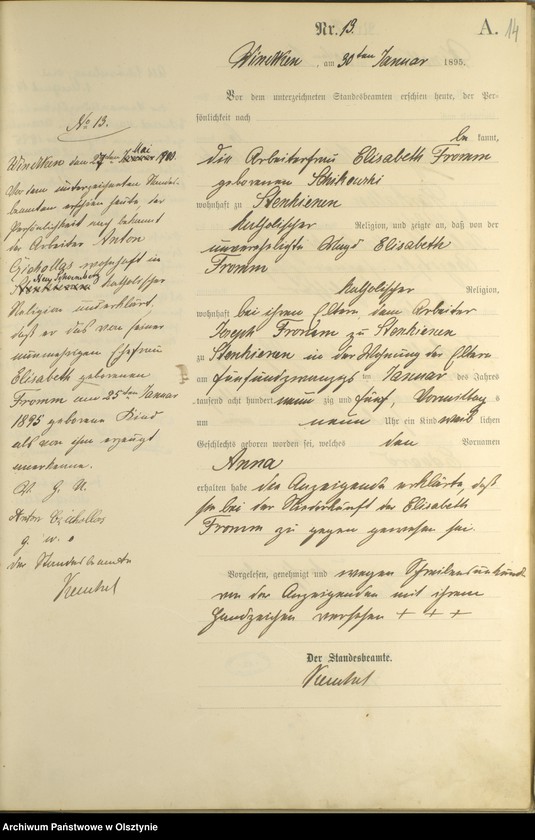 Nr. 13.
A. 14
Windken, am 30ten Januar 1895.
Vor dem unterzeichneten Standesbeamten erschien heute, der Per-
sönlichkeit nach
be kannt,
die Arbeiterfrau Elisabeth Fromm
geborenen Schikowski
wohnhaft zu Stenkienen
katholischer Religion, und zeigte an, daß von der
unverehelichte Magd Elisabeth
Fromm
katholischer Religion,
wohnhaft bei ihren Eltern, dem Arbeiter
Joseph Fromm zu Stenkienen
zu Stenkienen in der Wohnung der Eltern
am fünfundzwanzigsten Januar des Jahres
tausend acht hundert neun zig und fünf, Vormittag s
um neun Uhr ein Kind weib lichen
Geschlechts geboren worden sei, welches den Vornamen
Anna
erhalten habe die Anzeigende erklärte, daß
sie bei der Niederkunft der Elisabeth
Fromm zu gegen gewesen sei.
Vorgelesen, genehmigt und wegen Schreibensunkunde
von der Anzeigenden mit ihrem
Handzeichen versehen + + +
Der Standesbeamte.
No 13.
Windken den 27ten Mai 1900
Vor dem unterzeichneten Standes-
beamten erschien heute der
Persönlichkeit nach bekannt
der Arbeiter Anton
wohnhaft in
katholischer
Religion und erklärt,
daß er das von seiner
nunmehrigen Ehefrau
Elisabeth geborenen
Fromm am 25ten Januar
1895 geborene Kind
als von ihm erzeugt
anerkenne.
V. G. U.
Anton
g. w. o
der Standesbeamte
Archiwum Państwowe w Olsztynie